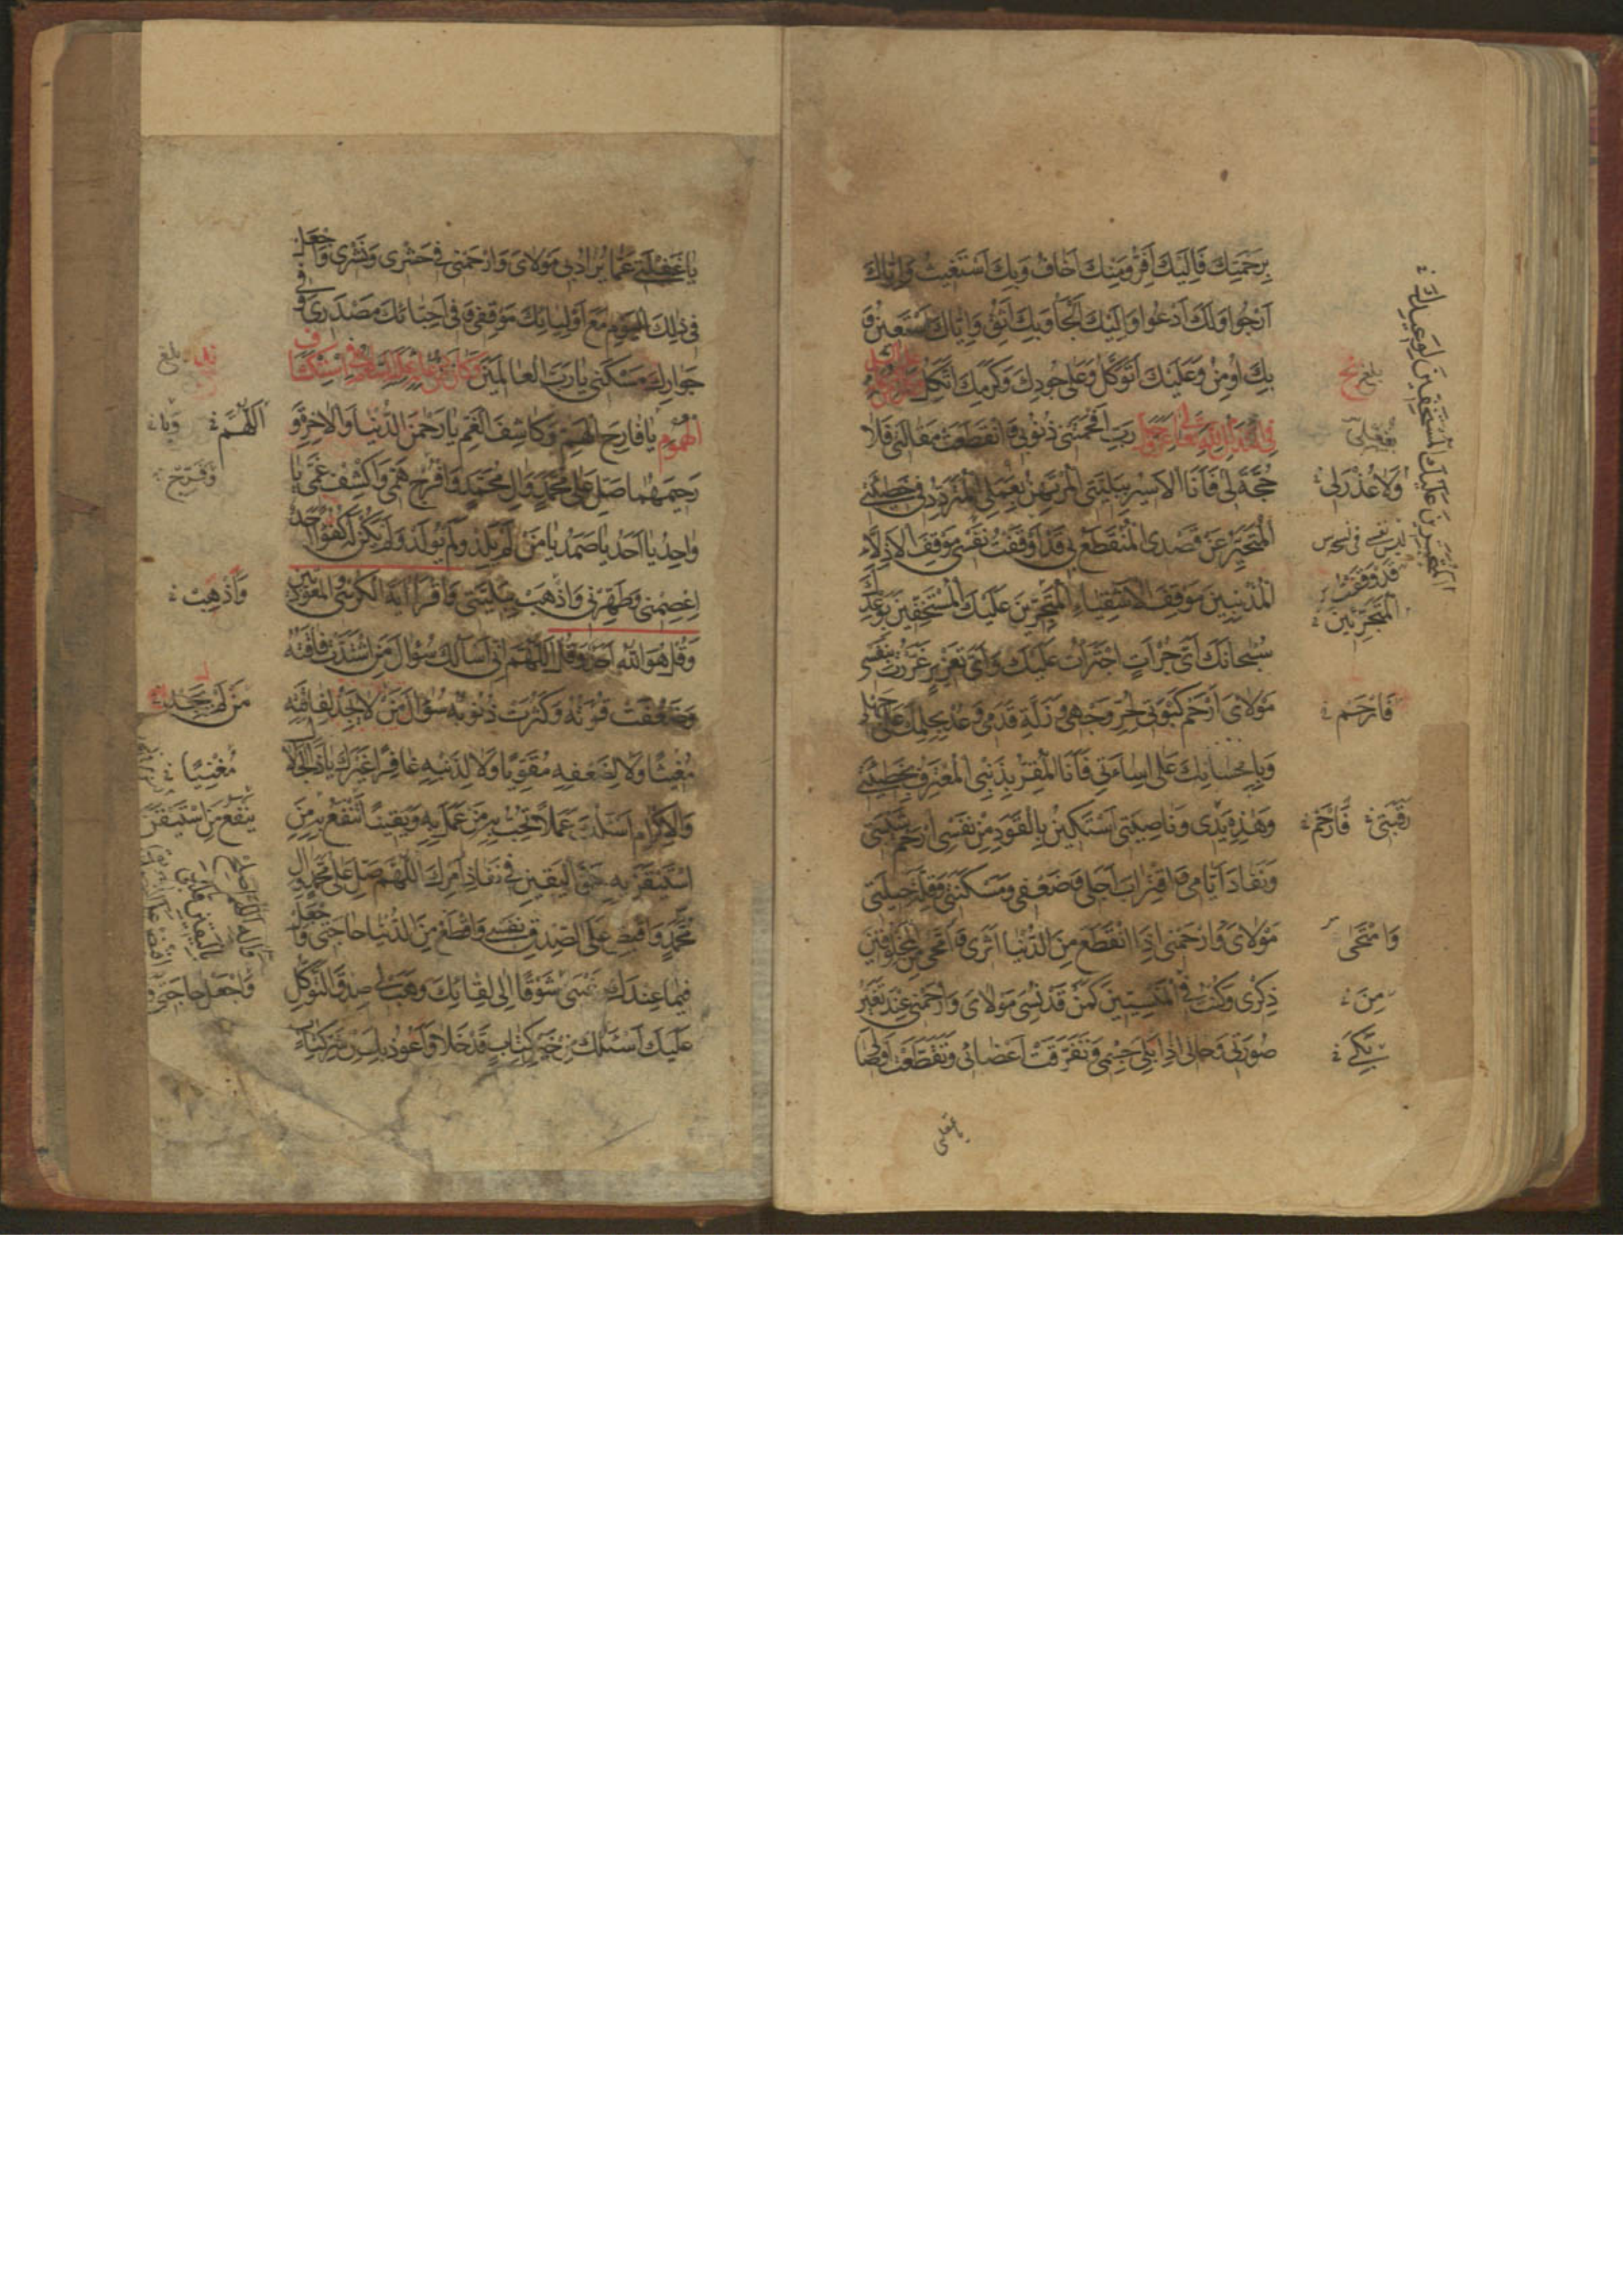 بِرَحْمَتِكَ فَاِلَيْكَ اَفِرُّ وَمِنْكَ اَخَافُ وَبِكَ اَسْتَغِيثُ وَاِيَّاكَ
اَرْجُوا وَلَكَ اَدْعُوا وَاِلَيْكَ اَلْجَأُ وَبِكَ اَثِقُ وَاِيَّاكَ اَسْتَعِينُ وَ
بِكَ اُومِنُ وَعَلَيْكَ اَتَوَكَّلُ وَعَلٰى جُودِكَ وَكَرَمِكَ اَتَّكِلُ
رَبِّ اَفْحَمَتْنِى ذُنُوبِى وَانْقَطَعَتْ مَقَالَتِى فَلَا
حُجَّةَ لِى فَاَنَا الْاَسِيرُ بِبَلِيَّتِى الْمُرْتَهَنُ بِعَمَلِى الْمُتَرَدِّدُ فِى خَطِيئَتِى
الْمُتَحَيِّرُ عَنْ قَصْدِى الْمُنْقَطَعُ بِى قَدْ اَوْقَفْتُ نَفْسِى مَوْقِفَ الْاَذِلَّاءِ
الْمُذْنِبِينَ مَوْقِفَ الْاَشْقِيَاءِ الْمُتَجَرِّينَ عَلَيْكَ الْمُسْتَخِفِّينَ بِوَعْدِكَ
سُبْحَانَكَ اَىَّ جُرْأَةٍ اجْتَرَأْتُ عَلَيْكَ وَاَىَّ تَغْرِيرٍ غَرَّرْتُ بِنَفْسِى
مَوْلَاىَ ارْحَمْ كَبْوَتِى لِحُرِّ وَجْهِى وَزَلَّةَ قَدَمِى وَعُدْ بِحِلْمِكَ عَلٰى جَهْلِى
وَبِاِحْسَانِكَ عَلٰى اِسَاءَتِى فَاَنَا الْمُقِرُّ بِذَنْبِى الْمُعْتَرِفُ بِخَطِيئَتِى
وَهٰذِهِ يَدِى وَنَاصِيَتِى اَسْتَكِينُ بِالْقَوَدِ مِنْ نَفْسِى اِرْحَمْ شَيْبَتِى
وَنَفَادَ اَيَّامِى وَاقْتِرَابَ اَجَلِى وَضَعْفِى وَمَسْكَنَتِى وَقِلَّةَ حِيلَتِى
مَوْلَاىَ وَارْحَمْنِى اِذَا انْقَطَعَ مِنَ الدُّنْيَا اَثَرِى وَامَّحٰى مِنَ الْمَخْلُوقِينَ
ذِكْرِى وَكُنْتُ فِى الْمَنْسِيِّينَ كَمَنْ قَدْ نُسِىَ مَوْلَاىَ وَارْحَمْنِى عِنْدَ تَغَيُّرِ
صُورَتِى وَحَالِى اِذَا بَلِىَ جِسْمِى وَتَفَرَّقَتْ اَعْضَائِى وَتَقَطَّعَتْ اَوْصَالِى
بلغ
وَلَا عُذْرَ لِى
قَدْ وَقَفْتُ
الْمُتَجَرِّئِينَ
فَارْحَمْ
رَقَبَتِى فَارْحَمْ
وَامْتَحٰى
مِنَ
يَا غَفْلَتِى عَمَّا يُرَادُ بِى مَوْلَاىَ وَارْحَمْنِى فِى حَشْرِى وَنَشْرِى وَاجْعَلْ
فِى ذٰلِكَ الْيَوْمِ مَعَ اَوْلِيَائِكَ مَوْقِفِى وَفِى اَحِبَّائِكَ مَصْدَرِى وَفِى
جِوَارِكَ مَسْكَنِى يَا رَبَّ الْعَالَمِينَ وَكَانَ مِنْ دُعَائِهِ عَلَيْهِ السَّلَامُ فِى اسْتِكْشَافِ
الْهُمُومِ يَا فَارِجَ الْهَمِّ وَكَاشِفَ الْغَمِّ يَا رَحْمٰنَ الدُّنْيَا وَالْاٰخِرَةِ وَ
رَحِيمَهُمَا صَلِّ عَلٰى مُحَمَّدٍ وَاٰلِ مُحَمَّدٍ وَافْرُجْ هَمِّى وَاكْشِفْ غَمِّى يَا
وَاحِدُ يَا اَحَدُ يَا صَمَدُ يَا مَنْ لَمْ يَلِدْ وَلَمْ يُولَدْ وَلَمْ يَكُنْ لَهُ كُفُوًا اَحَدٌ
اِعْصِمْنِى وَطَهِّرْنِى وَاذْهَبْ بِبَلِيَّتِى وَاقْرَأْ اٰيَةَ الْكُرْسِىِّ وَالْمُعَوِّذَتَيْنِ
وَقُلْ هُوَ اللّٰهُ اَحَدٌ وَقُلْ اَللّٰهُمَّ اِنِّى اَسْأَلُكَ سُؤَالَ مَنِ اشْتَدَّتْ فَاقَتُهُ
وَضَعُفَتْ قُوَّتُهُ وَكَثُرَتْ ذُنُوبُهُ سُؤَالَ مَنْ لَا يَجِدُ لِفَاقَتِهِ
مُغِيثًا وَلَا لِضَعْفِهِ مُقَوِّيًا وَلَا لِذَنْبِهِ غَافِرًا غَيْرَكَ يَا ذَا الْجَلَالِ
وَالْاِكْرَامِ اَسْئَلُكَ عَمَلًا تُحِبُّ بِهِ مَنْ عَمِلَ بِهِ وَيَقِينًا تَنْفَعُ بِهِ مَنِ
اسْتَيْقَنَ بِهِ حَقَّ الْيَقِينِ فِى نَفَاذِ اَمْرِكَ اَللّٰهُمَّ صَلِّ عَلٰى مُحَمَّدٍ وَاٰلِ
مُحَمَّدٍ وَاقْبِضْ عَلَى الصِّدْقِ نَفْسِى وَاقْطَعْ مِنَ الدُّنْيَا حَاجَتِى وَاجْعَلْ
فِيمَا عِنْدَكَ رَغْبَتِى شَوْقًا اِلٰى لِقَائِكَ وَهَبْ لِى صِدْقَ التَّوَكُّلِ
عَلَيْكَ اَسْئَلُكَ مِنْ خَيْرِ كِتَابٍ قَدْ خَلَا وَاَعُوذُ بِكَ مِنْ شَرِّ كِتَابٍ
بلغ
اَللّٰهُمَّ
وَيَا
وَفَرِّجْ
وَاَذْهِبْ
مَنْ لَمْ يَجِدْ
مُغْنِيًا
يَنْفَعُ مَنِ اسْتَيْقَنَ
وَاجْعَلْ حَاجَتِى